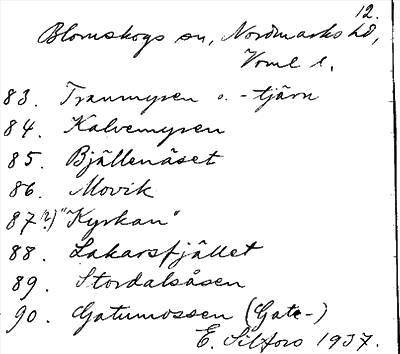 12.
Blomskogs sn, Nordmarks hd,
Vrml l.
83. Tranmyren o. -tjärn
84. Kalvemyren
85. Bjällenäset
86. Movik
87?) "Kyrkan"
88. Lakarsfjället
89. Stordalsåsen
90. Gatumossen (Gate-)
E. Silfors 1937.